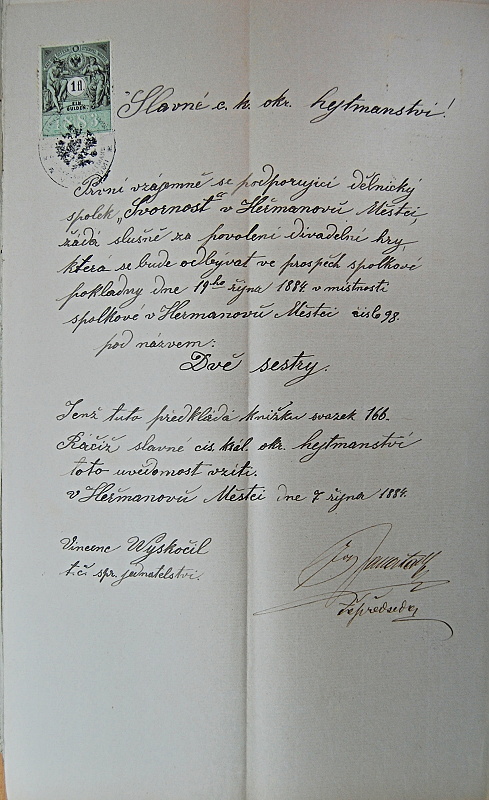 1 fl
EIN
GULDEN
1883
Slavné c. k. okr. hejtmanství!
První vzájemně se podporující dělnický
spolek „Svornost“ v Heřmanovů Městci,
žádá slušně za povolení divadelní hry,
která se bude odbývat ve prospěch spolkové
pokladny dne 19ho října 1884 v místnosti
spolkové v Heřmanovů Městci čislo 98.
pod názvem:
Dvě sestry.
Jenž tuto předkládá knížku svazek 166.
Ráčiž slavné cis. král. okr. hejtmanství
toto uvědomost vzíti.
V Heřmanovů Městci dne 7 října 1884.
Vincenc Wyskočil
t. č. spr. jednatelství.
předseda